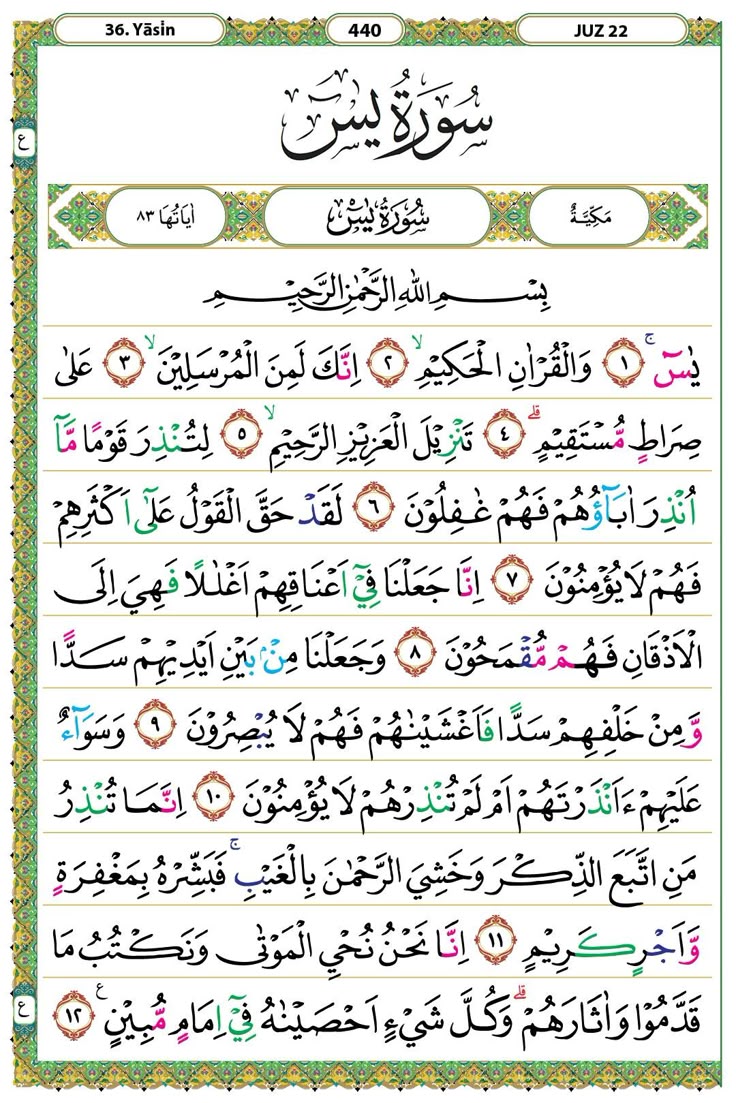 36. Yāsin
440
JUZ 22
سُوْرَةُ يٰسۤ
مَكِّيَّةٌ
سُوْرَةُ يٰسۤ
اٰيَاتُهَا ٨٣
ع
بِسْمِ اللّٰهِ الرَّحْمٰنِ الرَّحِيْمِ
يٰسۤ ۚ ١ وَالْقُرْاٰنِ الْحَكِيْمِ ۙ ٢ اِنَّكَ لَمِنَ الْمُرْسَلِيْنَ ۙ ٣ عَلٰى
صِرَاطٍ مُّسْتَقِيْمٍ ۗ ٤ تَنْزِيْلَ الْعَزِيْزِ الرَّحِيْمِ ۙ ٥ لِتُنْذِرَ قَوْمًا مَّآ
اُنْذِرَ اٰبَاۤؤُهُمْ فَهُمْ غٰفِلُوْنَ ٦ لَقَدْ حَقَّ الْقَوْلُ عَلٰٓى اَكْثَرِهِمْ
فَهُمْ لَا يُؤْمِنُوْنَ ٧ اِنَّا جَعَلْنَا فِيْٓ اَعْنَاقِهِمْ اَغْلٰلًا فَهِيَ اِلَى
الْاَذْقَانِ فَهُمْ مُّقْمَحُوْنَ ٨ وَجَعَلْنَا مِنْۢ بَيْنِ اَيْدِيْهِمْ سَدًّا
وَّمِنْ خَلْفِهِمْ سَدًّا فَاَغْشَيْنٰهُمْ فَهُمْ لَا يُبْصِرُوْنَ ٩ وَسَوَاۤءٌ
عَلَيْهِمْ ءَاَنْذَرْتَهُمْ اَمْ لَمْ تُنْذِرْهُمْ لَا يُؤْمِنُوْنَ ١٠ اِنَّمَا تُنْذِرُ
مَنِ اتَّبَعَ الذِّكْرَ وَخَشِيَ الرَّحْمٰنَ بِالْغَيْبِ ۚ فَبَشِّرْهُ بِمَغْفِرَةٍ
وَّاَجْرٍ كَرِيْمٍ ١١ اِنَّا نَحْنُ نُحْيِ الْمَوْتٰى وَنَكْتُبُ مَا
قَدَّمُوْا وَاٰثَارَهُمْ ۗ وَكُلَّ شَيْءٍ اَحْصَيْنٰهُ فِيْٓ اِمَامٍ مُّبِيْنٍ ࣖ ١٢
ع